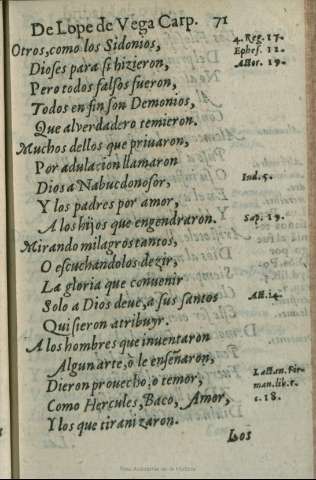 De Lope de Vega Carp. 71
Otros, como los Sidonios,
4. Reg. 17.
Dioses para si hizieron,
Ephes. 11.
Pero todos falsos fueron,
Actor. 19.
Todos en fin son Demonios,
Que al verdadero temieron.
Muchos dellos que priuaron,
Por adulacion llamaron
Dios a Nabucdonosor,
Ind. 5.
Y los padres por amor,
A los hijos que engendraron.
Sap. 19.
Mirando milagros tantos,
O escuchandolos dezir,
La gloria que conuenir
Solo a Dios deue, a sus santos
Act. 14.
Quisieron atribuyr.
A los hombres que inuentaron
Algun arte, ò le enseñaron,
Dieron prouecho, ò temor,
Lactan. Fir-
man. lib. 1.
Como Hercules, Baco, Amor,
c. 18.
Y los que tiranizaron.
Los
Real Academia de la Historia